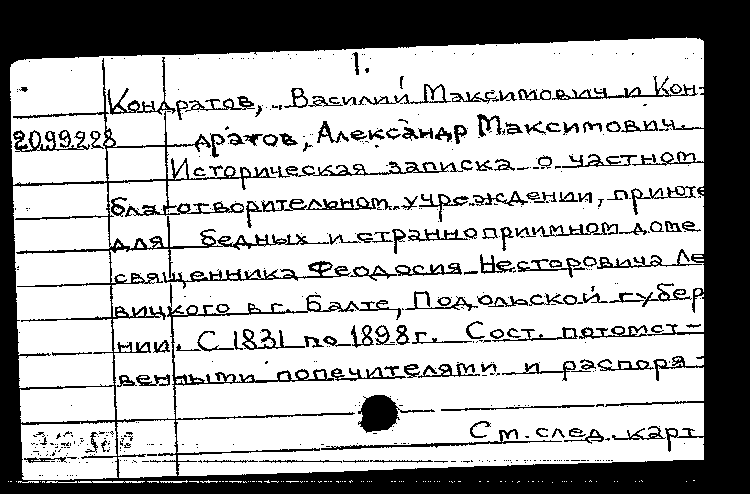 1.
Кондратов, Василий Максимович и Кон-
2099228 дратов, Александр Максимович.
Историческая записка о частном
благотворительном учреждении, приюте
для бедных и странноприимном доме
священника Феодосия Несторовича Ле
вицкого в г. Балте, Подольской губер
нии. С 1831 по 1898 г. Сост. потомст-
венными попечителями и распоря-
См. след. карт